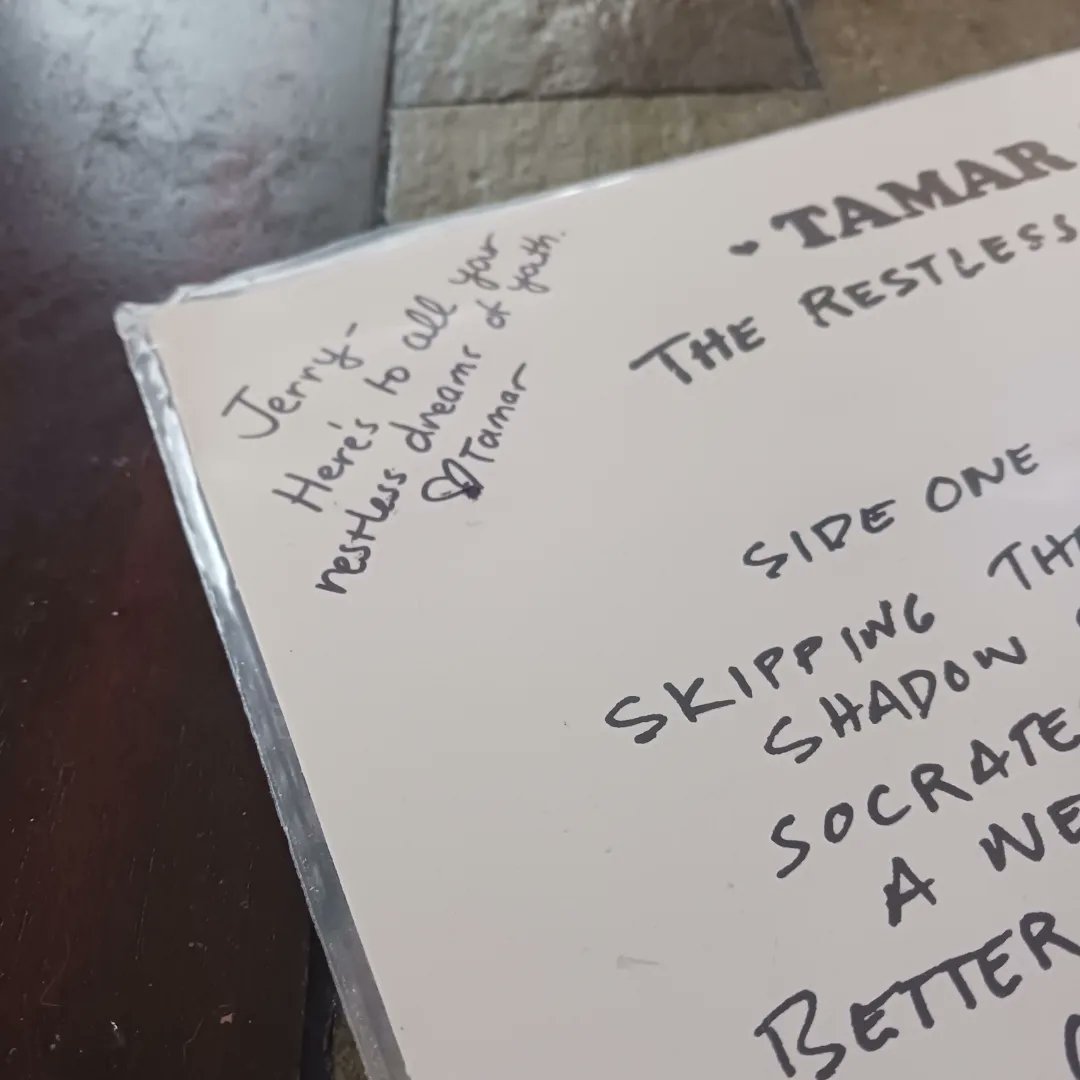 Jerry-
Here's to all your
restless dreams of youth.
♡Tamar
♥ TAMAR
THE RESTLESS
SIDE ONE
SKIPPING THE
SHADOW
SOCRATE
A WE
BETTER